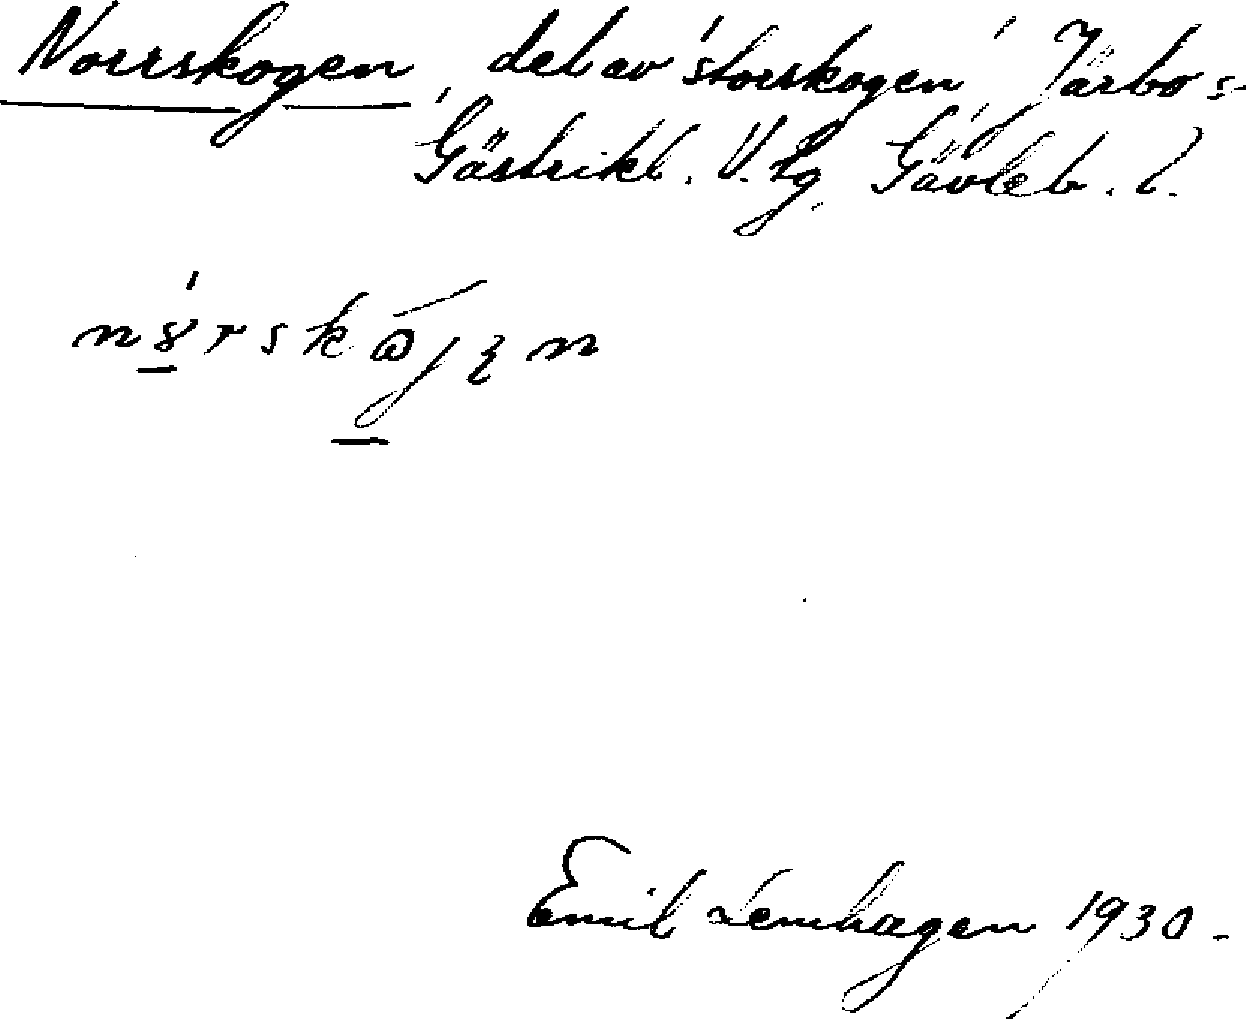 Norrskogen, del av 'storskogen', Järbo s-
Gästrikl. V. tg, Gävleb. l.
Emil Lenhagen 1930.